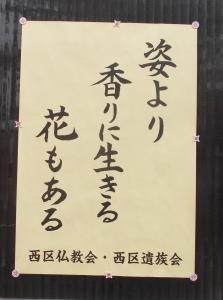 姿より
香りに生きる
花もある
西区仏教会・西区遺族会